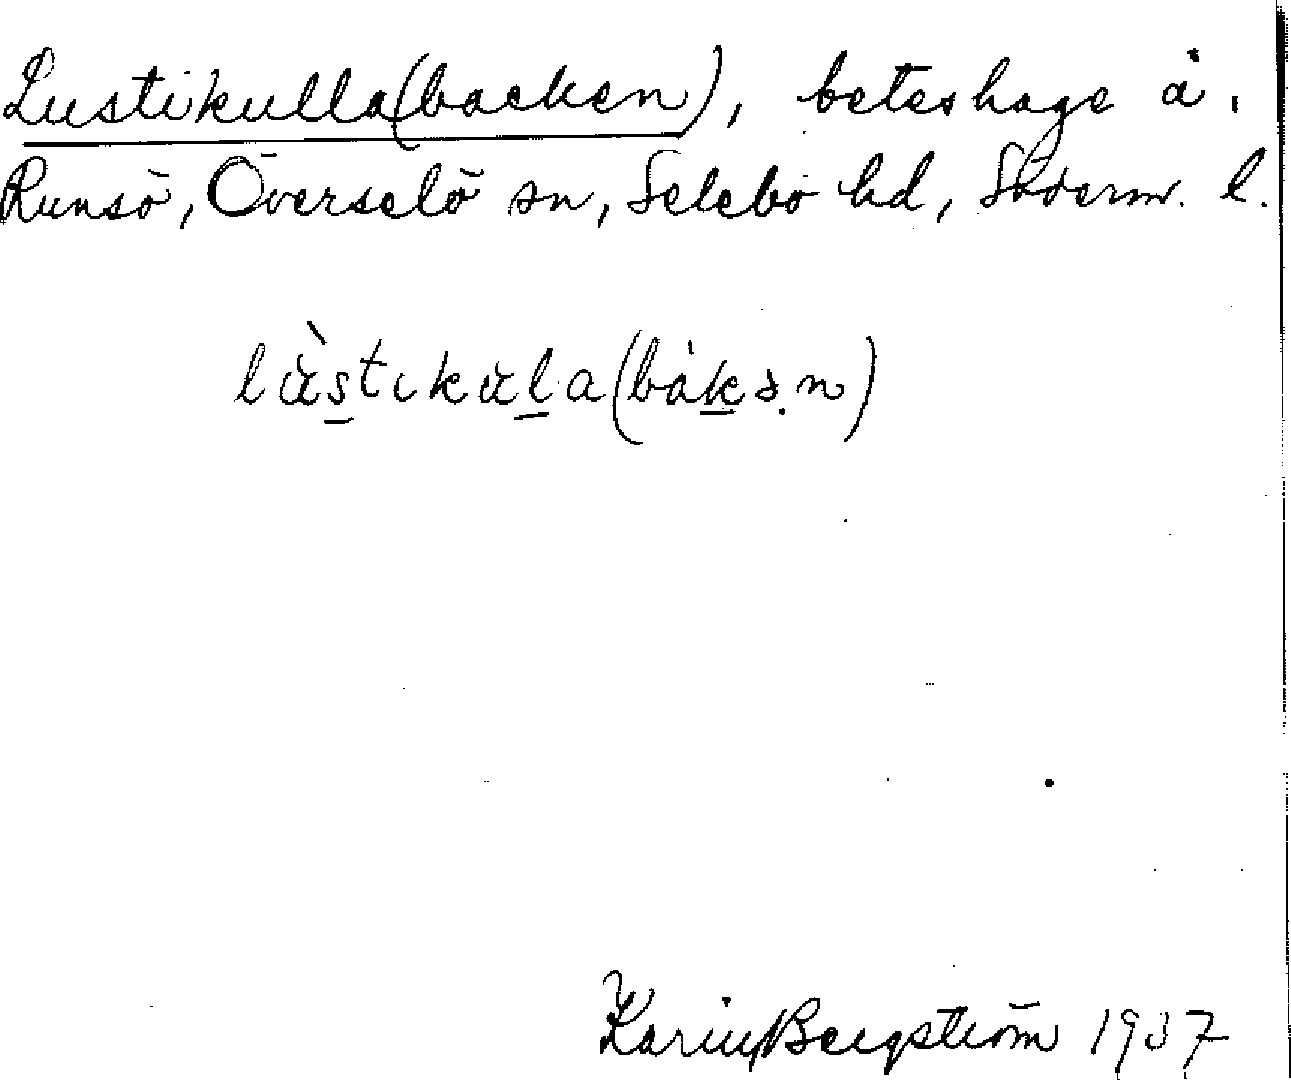 Lustikulla(backen), beteshage å
Runsö, Överselö sn, Selebo hd, Söderm. l.
lùstikùla(bàkən)
Karin Bergström 1937